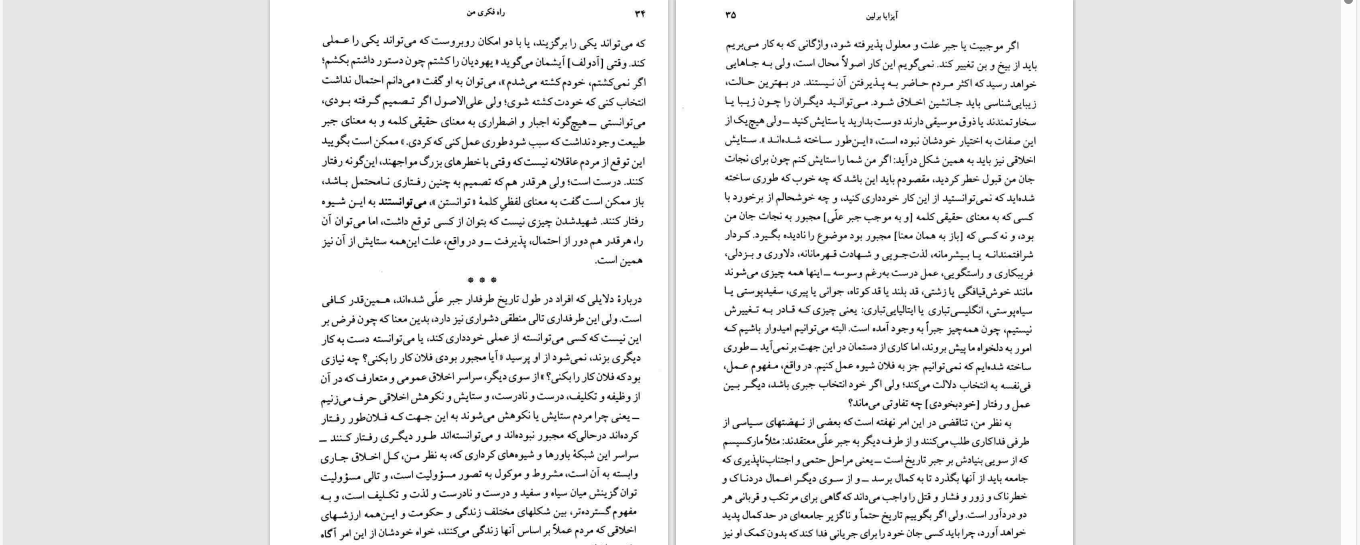 ۳۴
راه فکری من
که می‌تواند یکی را برگزیند، یا با دو امکان روبروست که می‌تواند یکی را عملی
کند. وقتی [آدولف] آیشمان می‌گوید «یهودیان را کشتم چون دستور داشتم بکشم؛
اگر نمی‌کشتم، خودم کشته می‌شدم»، می‌توان به او گفت «می‌دانم احتمال نداشت
انتخاب کنی که خودت کشته شوی؛ ولی علی‌الاصول اگر تصمیم گرفته بودی،
می‌توانستی ــ هیچ‌گونه اجبار و اضطراری به معنای حقیقی کلمه و به معنای جبر
طبیعت وجود نداشت که سبب شود طوری عمل کنی که کردی.» ممکن است بگویید
این توقع از مردم عاقلانه نیست که وقتی با خطرهای بزرگ مواجهند، این‌گونه رفتار
کنند. درست است؛ ولی هر قدر هم که تصمیم به چنین رفتاری نامحتمل باشد،
باز ممکن است گفت به معنای لفظیِ کلمهٔ «توانستن»، می‌توانستند به این شیوه
رفتار کنند. شهیدشدن چیزی نیست که بتوان از کسی توقع داشت، اما می‌توان آن
را، هر قدر هم دور از احتمال، پذیرفت ــ و در واقع، علت این‌همه ستایش از آن نیز
همین است.
* * *
دربارهٔ دلایلی که افراد در طول تاریخ طرفدار جبر علّی شده‌اند، همین‌قدر کافی
است. ولی این طرفداری تالی منطقی دشواری نیز دارد، بدین معنا که چون فرض بر
این نیست که کسی می‌توانسته از عملی خودداری کند، یا می‌توانسته دست به کار
دیگری بزند، نمی‌شود از او پرسید «آیا مجبور بودی فلان کار را بکنی؟ چه نیازی
بود که فلان کار را بکنی؟» از سوی دیگر، سراسر اخلاق عمومی و متعارف که در آن
از وظیفه و تکلیف، درست و نادرست، و ستایش و نکوهش اخلاقی حرف می‌زنیم
ــ یعنی چرا مردم ستایش یا نکوهش می‌شوند به این جهت که فلان‌طور رفتار
کرده‌اند درحالی‌که مجبور نبوده‌اند و می‌توانسته‌اند طور دیگری رفتار کنند ــ
سراسر این شبکهٔ باورها و شیوه‌های کرداری که، به نظر من، کل اخلاق جاری
وابسته به آن است، مشروط و موکول به تصور مسؤولیت است، و تالی مسؤولیت
توان گزینش میان سیاه و سفید و درست و نادرست و لذت و تکلیف است، و به
مفهوم گسترده‌تر، بین شکلهای مختلف زندگی و حکومت و این‌همه ارزشهای
اخلاقی که مردم عملاً بر اساس آنها زندگی می‌کنند، خواه خودشان از این امر آگاه
۳۵
آیزایا برلین
اگر موجبیت یا جبر علت و معلول پذیرفته شود، واژگانی که به کار می‌بریم
باید از بیخ و بن تغییر کند. نمی‌گویم این کار اصولاً محال است، ولی به جاهایی
خواهد رسید که اکثر مردم حاضر به پذیرفتن آن نیستند. در بهترین حالت،
زیبایی‌شناسی باید جانشین اخلاق شود. می‌توانید دیگران را چون زیبا یا
سخاوتمندند یا ذوق موسیقی دارند دوست بدارید یا ستایش کنید ــ ولی هیچ‌یک از
این صفات به اختیار خودشان نبوده است، «این‌طور ساخته شده‌اند». ستایش
اخلاقی نیز باید به همین شکل درآید: اگر من شما را ستایش کنم چون برای نجات
جان من قبول خطر کردید، مقصودم باید این باشد که چه خوب که طوری ساخته
شده‌اید که نمی‌توانستید از این کار خودداری کنید، و چه خوشحالم از برخورد با
کسی که به معنای حقیقی کلمه [و به موجب جبر علّی] مجبور به نجات جان من
بود، و نه کسی که [باز به همان معنا] مجبور بود موضوع را نادیده بگیرد. کردار
شرافتمندانه یا بیشرمانه، لذت‌جویی و شهادت قهرمانانه، دلاوری و بزدلی،
فریبکاری و راستگویی، عمل درست به‌رغم وسوسه ــ اینها همه چیزی می‌شوند
مانند خوش‌قیافگی یا زشتی، قد بلند یا قد کوتاه، جوانی یا پیری، سفیدپوستی یا
سیاه‌پوستی، انگلیسی‌تباری یا ایتالیایی‌تباری: یعنی چیزی که قادر به تغییرش
نیستیم، چون همه‌چیز جبراً به وجود آمده است. البته می‌توانیم امیدوار باشیم که
امور به دلخواه ما پیش بروند، اما کاری از دستمان در این جهت برنمی‌آید ــ طوری
ساخته شده‌ایم که نمی‌توانیم جز به فلان شیوه عمل کنیم. در واقع، مفهوم عمل،
فی‌نفسه به انتخاب دلالت می‌کند؛ ولی اگر خود انتخاب جبری باشد، دیگر بین
عمل و رفتار [خودبخودی] چه تفاوتی می‌ماند؟
به نظر من، تناقضی در این امر نهفته است که بعضی از نهضتهای سیاسی از
طرفی فداکاری طلب می‌کنند و از طرف دیگر به جبر علّی معتقدند: مثلاً مارکسیسم
که از سویی بنیادش بر جبر تاریخ است ــ یعنی مراحل حتمی و اجتناب‌ناپذیری که
جامعه باید از آنها بگذرد تا به کمال برسد ــ و از سوی دیگر اعمال دردناک و
خطرناک و زور و فشار و قتل را واجب می‌داند که گاهی برای مرتکب و قربانی هر
دو دردآور است. ولی اگر بگوییم تاریخ حتماً و ناگزیر جامعه‌ای در حد کمال پدید
خواهد آورد، چرا باید کسی جان خود را برای جریانی فدا کند که بدون کمک او نیز